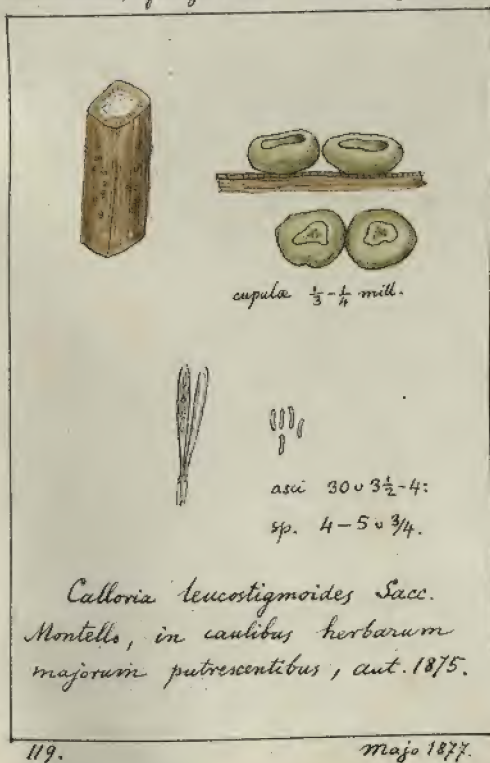 cupulæ 1/3-1/4 mill.
asci 30 υ 3 1/2-4:
sp. 4-5 υ 3/4.
Calloria leucostigmoides Sacc.
Montello, in caulibus herbarum
majorum putrescentibus, aut. 1875.
119. Majo 1877.